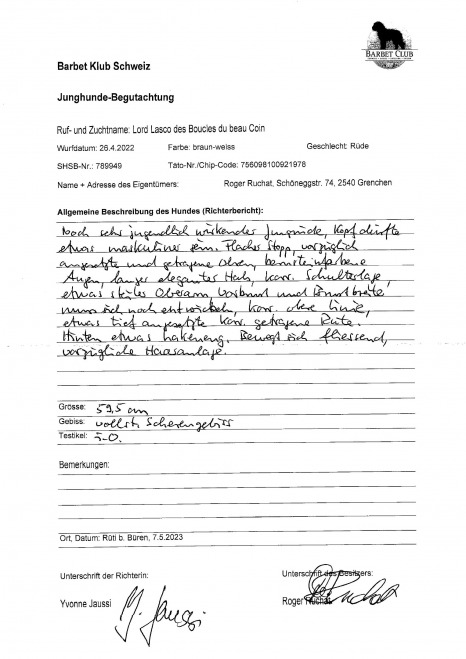 BARBET CLUB
Barbet Klub Schweiz
Junghunde-Begutachtung
Ruf- und Zuchtname: Lord Lasco des Boucles du beau Coin
Wurfdatum: 26.4.2022 Farbe: braun-weiss Geschlecht: Rüde
SHSB-Nr.: 789949 Täto-Nr./Chip-Code: 756098100921978
Name + Adresse des Eigentümers: Roger Ruchat, Schöneggstr. 74, 2540 Grenchen
Allgemeine Beschreibung des Hundes (Richterbericht):
Noch sehr jugendlich wirkender Jungrüde, Kopf dürfte
etwas maskuliner sein. Flacher Stopp, vorzüglich
angesetzte und getragene Ohren, bernsteinfarbene
Augen, langer eleganter Hals, korr. Schulterlage,
etwas steiler Oberarm. Vorbrust und Brustbreite
muss sich noch entwickeln, korr. obere Linie,
etwas tief angesetzte korr. getragene Rute.
Hinten etwas hakeneng. Bewegt sich fliessend,
vorzügliche Haaranlage.
Grösse: 59,5 cm
Gebiss: vollst. Scherengebiss
Testikel: i.O.
Bemerkungen:
Ort, Datum: Rüti b. Büren, 7.5.2023
Unterschrift der Richterin: Unterschrift des Besitzers:
Yvonne Jaussi Y. Jaussi Roger Ruchat Ruchat